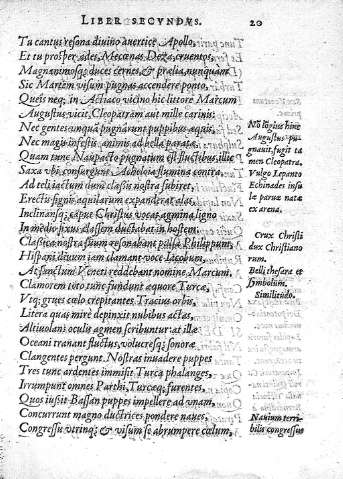 LIBER SECVNDVS. 20
Tu cantus resona diuino auertice Apollo,
Et tu prosper ades, Mecœnas Deza, cruentos,
Magnanimosq; duces cernes, & prœlia nunquàm
Sic Martem visum pugnas accendere ponto,
Queis neq; in Actiaco vicino hic littore Marcum
Augustus vicit, Cleopatram aut mille carinis:
Nec gentes unquā pugnarunt puppibus æquis,
Nec magis infestis animis ad bella paratæ.
Quam tunc Naupacto pugnatum est fluctibus, ille
Saxa vbi consurgunt Acheloia flumina contra,
Ad teli iactum dum classis nostra subiret,
Erectis signis aquilarum expanderat alas.
Inclinansq; caput Christus vocat agmina ligno
In medio fixus classem ductabat in hostem:
Classica nostra suum resonabant passa Philippum,
Hispani diuum iam clamant voce Iacobum,
At sanctum Veneti reddebant nomine Marcum,
Clamorem toto tunc fundunt æquore Turcæ,
Vtq; grues cœlo crepitantes Tracius orbis,
Litera quas mirè depinxit nubibus actas,
Altiuolans oculis agmen scribuntur at illæ
Oceani tranant fluctus, volucresq; sonoræ
Clangentes pergunt. Nostras inuadere puppes
Tres tunc ardentes immisit Turca phalanges,
Irrumpunt omnes Parthi, Turcæq; furentes,
Quos iussit Bassan puppes impellere ad vnam,
Concurrunt magno ductrices pondere naues,
Congressu vtrinq; & visum se abrumpere cœlum,
No lōgius hinc
Augustus pu-
gnauit, fugit ta
men Cleopatra.
Vulgo Lepanto
Echinades insu
læ paruæ natæ
ex arena.
Crux Christi
dux Christiano
rum.
Belli thesara et
symbolum.
Similitudo.
Nauium terri-
bilis congressus